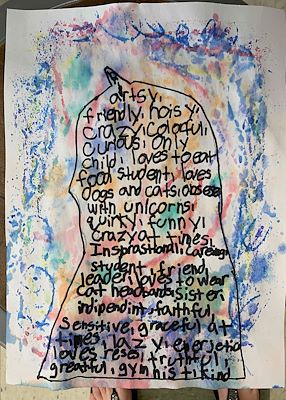 artsy,
friendly, noisy,
crazy, colorful,
curious, only
child, loves to eat
food, student, loves
dogs and cats, obsesed
with unicorns,
quirty, funny,
crazy at times,
Insprastional, careing,
student, friend,
leader, loves to wear
cat headbands, sister,
indipendint, faithful,
sensitive, graceful at
times, lazy, energetic
loves reses, truthful,
greatful, gymnist, kind